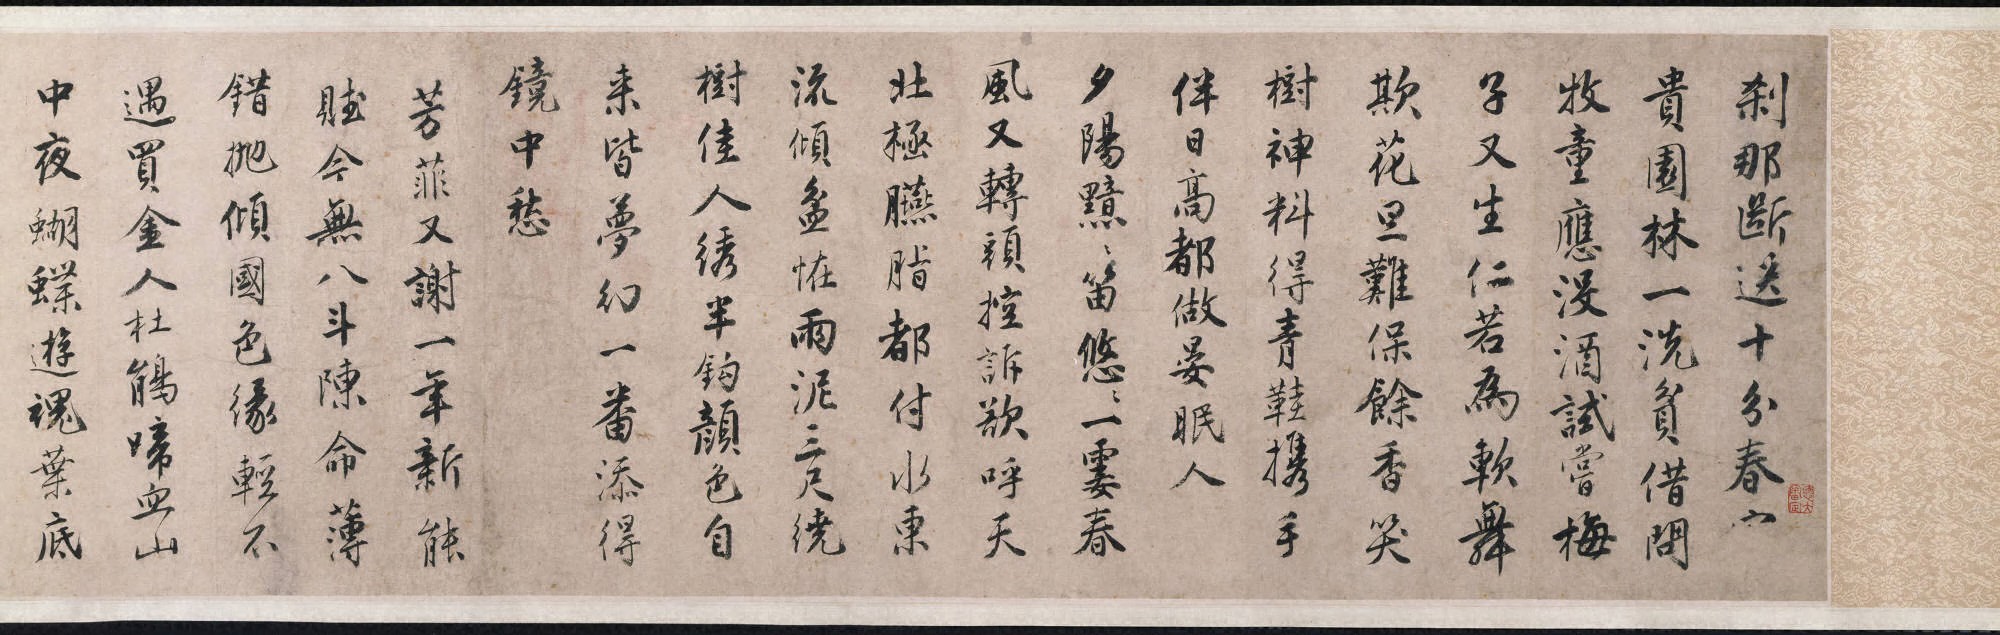 刹那斷送十分春富
貴園林一洗貧借問
牧童應没酒試嘗梅
子又生仁若為軟舞
欺花旦難保餘香笑
樹神料得青鞋攜手
伴日高都做晏眠人
夕陽黯〻笛悠〻一霎春
風又轉頭控訴欲呼天
北極臙脂都付水東
流傾盆怪雨泥三尺繞
樹佳人綉半鈎顏色自
来皆夢幻一番添得
鏡中愁
芳菲又謝一年新能
賦今無八斗陳命薄
錯抛傾國色緣輕不
遇買金人杜鵑啼血山
中夜蝴蝶遊魂葉底